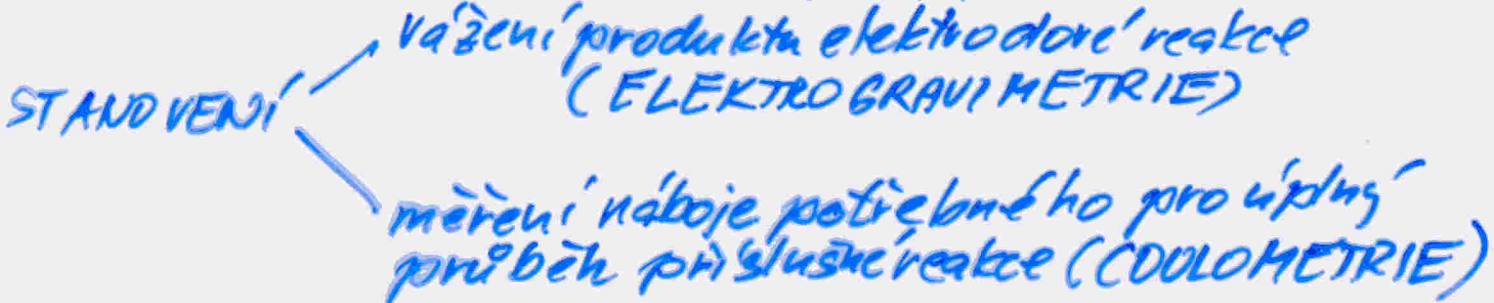 vážení produktu elektrodové reakce
(ELEKTROGRAVIMETRIE)
STANOVENÍ
měření náboje potřebného pro úplný
průběh příslušné reakce (COULOMETRIE)